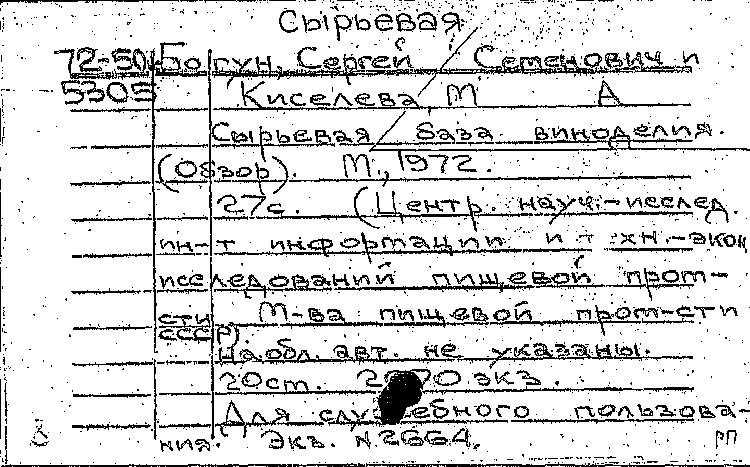 Сырьевая
72-50 Богун, Сергей Семенович и
5305 Киселева, М А
Сырьевая база виноделия.
(Обзор). М., 1972.
27с. (Центр. науч.-исслед.
ин-т информации и т хн.-экон
исследований пищевой пром-
сти М-ва пищевой пром-сти
СССР).
На обл. авт. не указаны.
20ст. экз.
Для служебного пользова-
ния. Экз. N 2664.
РП